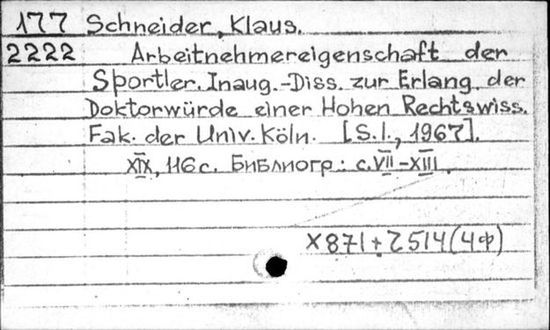 177 Schneider, Klaus.
2222 Arbeitnehmereigenschaft der
Sportler. Inaug.-Diss. zur Erlang. der
Doktorwürde einer Hohen Rechtswiss.
Fak. der Univ. Köln. [S.l., 1967].
XIX, 116 с. Библиогр.: с. VII-XIII.
X871+2514(4ф)